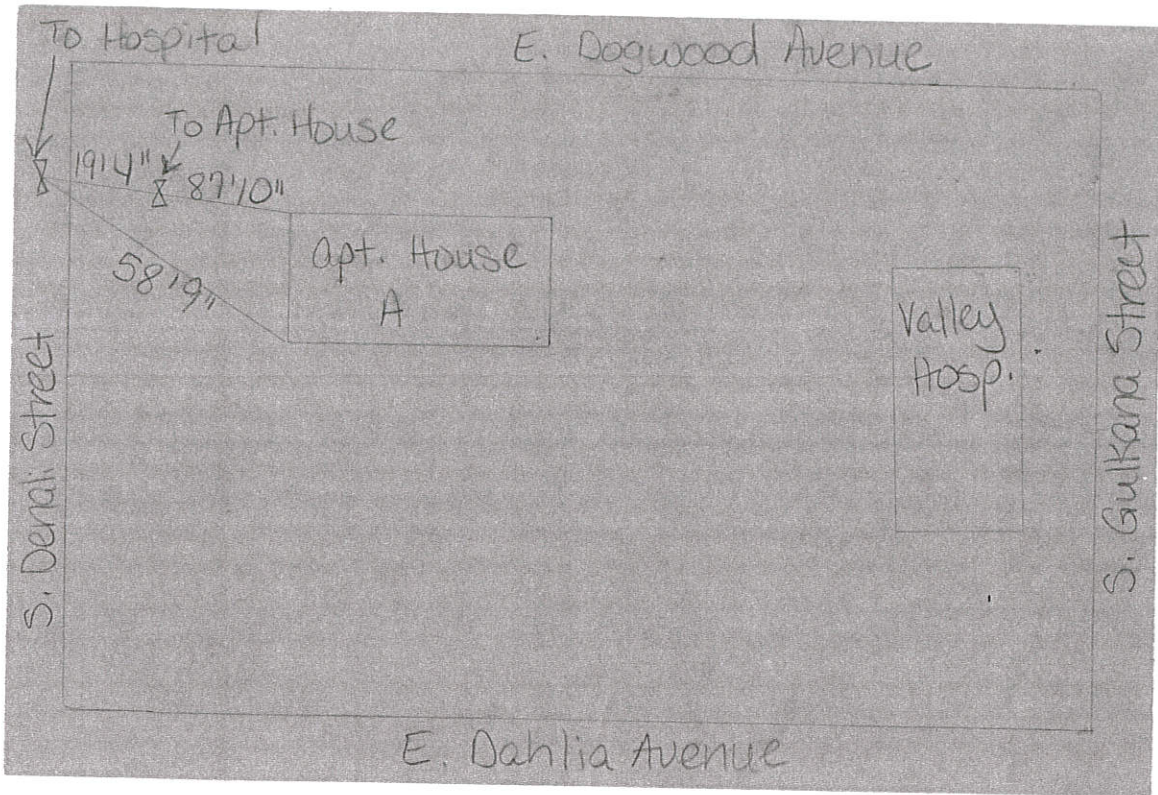 To Hospital
E. Dogwood Avenue
To Apt. House
19'4"
87'10"
58'9"
Apt. House
A
Valley
Hosp.
S. Denali Street
S. Gulkana Street
E. Dahlia Avenue